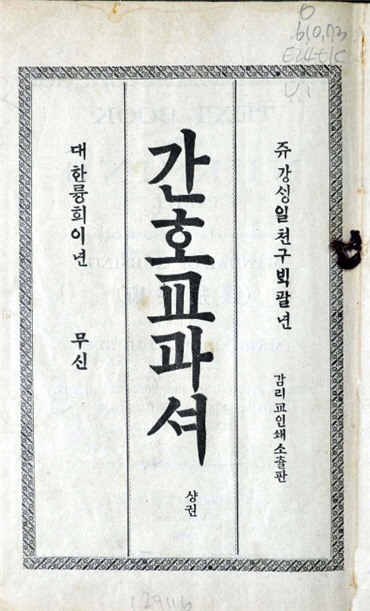 610.73
V.1
쥬강싱일천구빅팔년
감리교인쇄소출판
간호교과셔
샹권
대한륭희이년 무신
129116